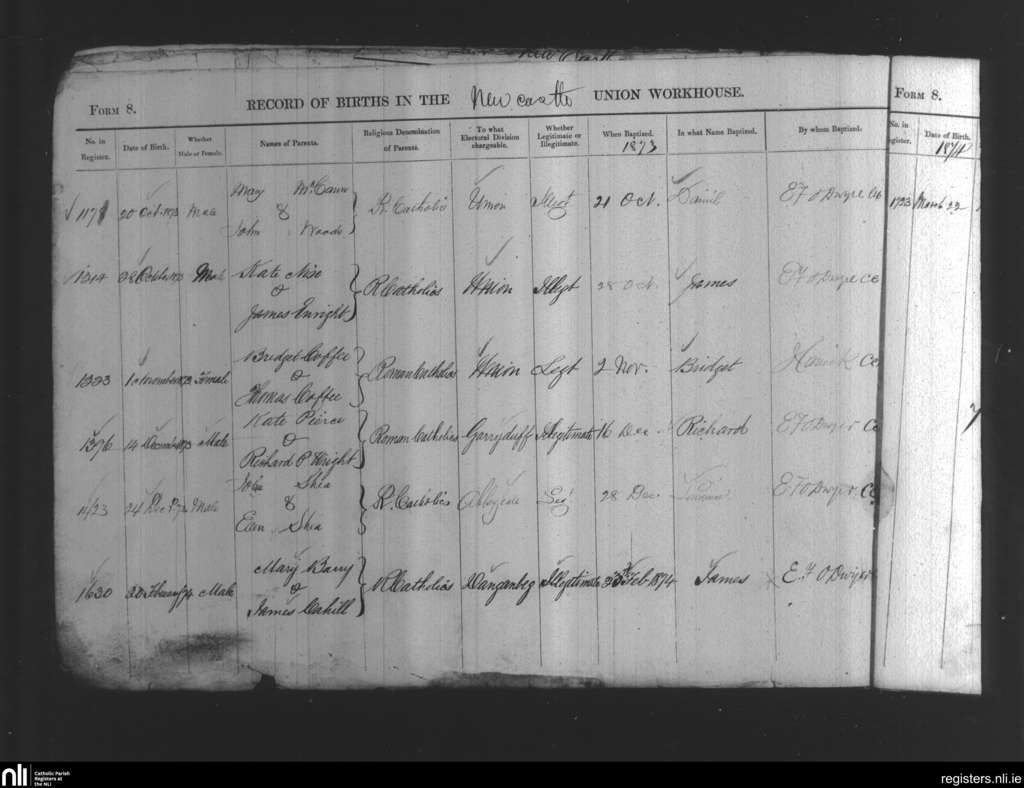 FORM 8. RECORD OF BIRTHS IN THE New castle UNION WORKHOUSE.
No. in Register. Date of Birth. Whether Male or Female. Names of Parents. Religious Denomination of Parents. To what Electoral Division chargeable. Whether Legitimate or Illegitimate. When Baptized. 1873 In what Name Baptized. By whom Baptized.
20 Oct. 1873 Male Mary McCann & John Woods R. Catholic Union Illegt 21 Oct. Daniel E F O Dwyer CC
Male Kate Nixo & James Enright R Catholics Union Illegt 28 Oct. James E F O Dwyer CC
1 November 1873 Female Bridget Coffee & Thomas Coffee Roman Catholics Union Legt 2 Nov. Bridget CC
1376 14 December 1873 Male Kate Pierce & Richard P Wright Roman Catholics Garryduff Illegitimate 16 Dec Richard E F O Dwyer CC
24 Dec Male Shea & Ellen Shea R. Catholics Legt 28 Dec. E F O Dwyer. CC
1630 Male Mary Barry & James Cahill R Catholics Illegitimate Feb 1874 James E. F O Dwyer
FORM 8.
No. in Register. Date of Birth. 1874
1723 March 22
nli Catholic Parish Registers at the NLI
registers.nli.ie